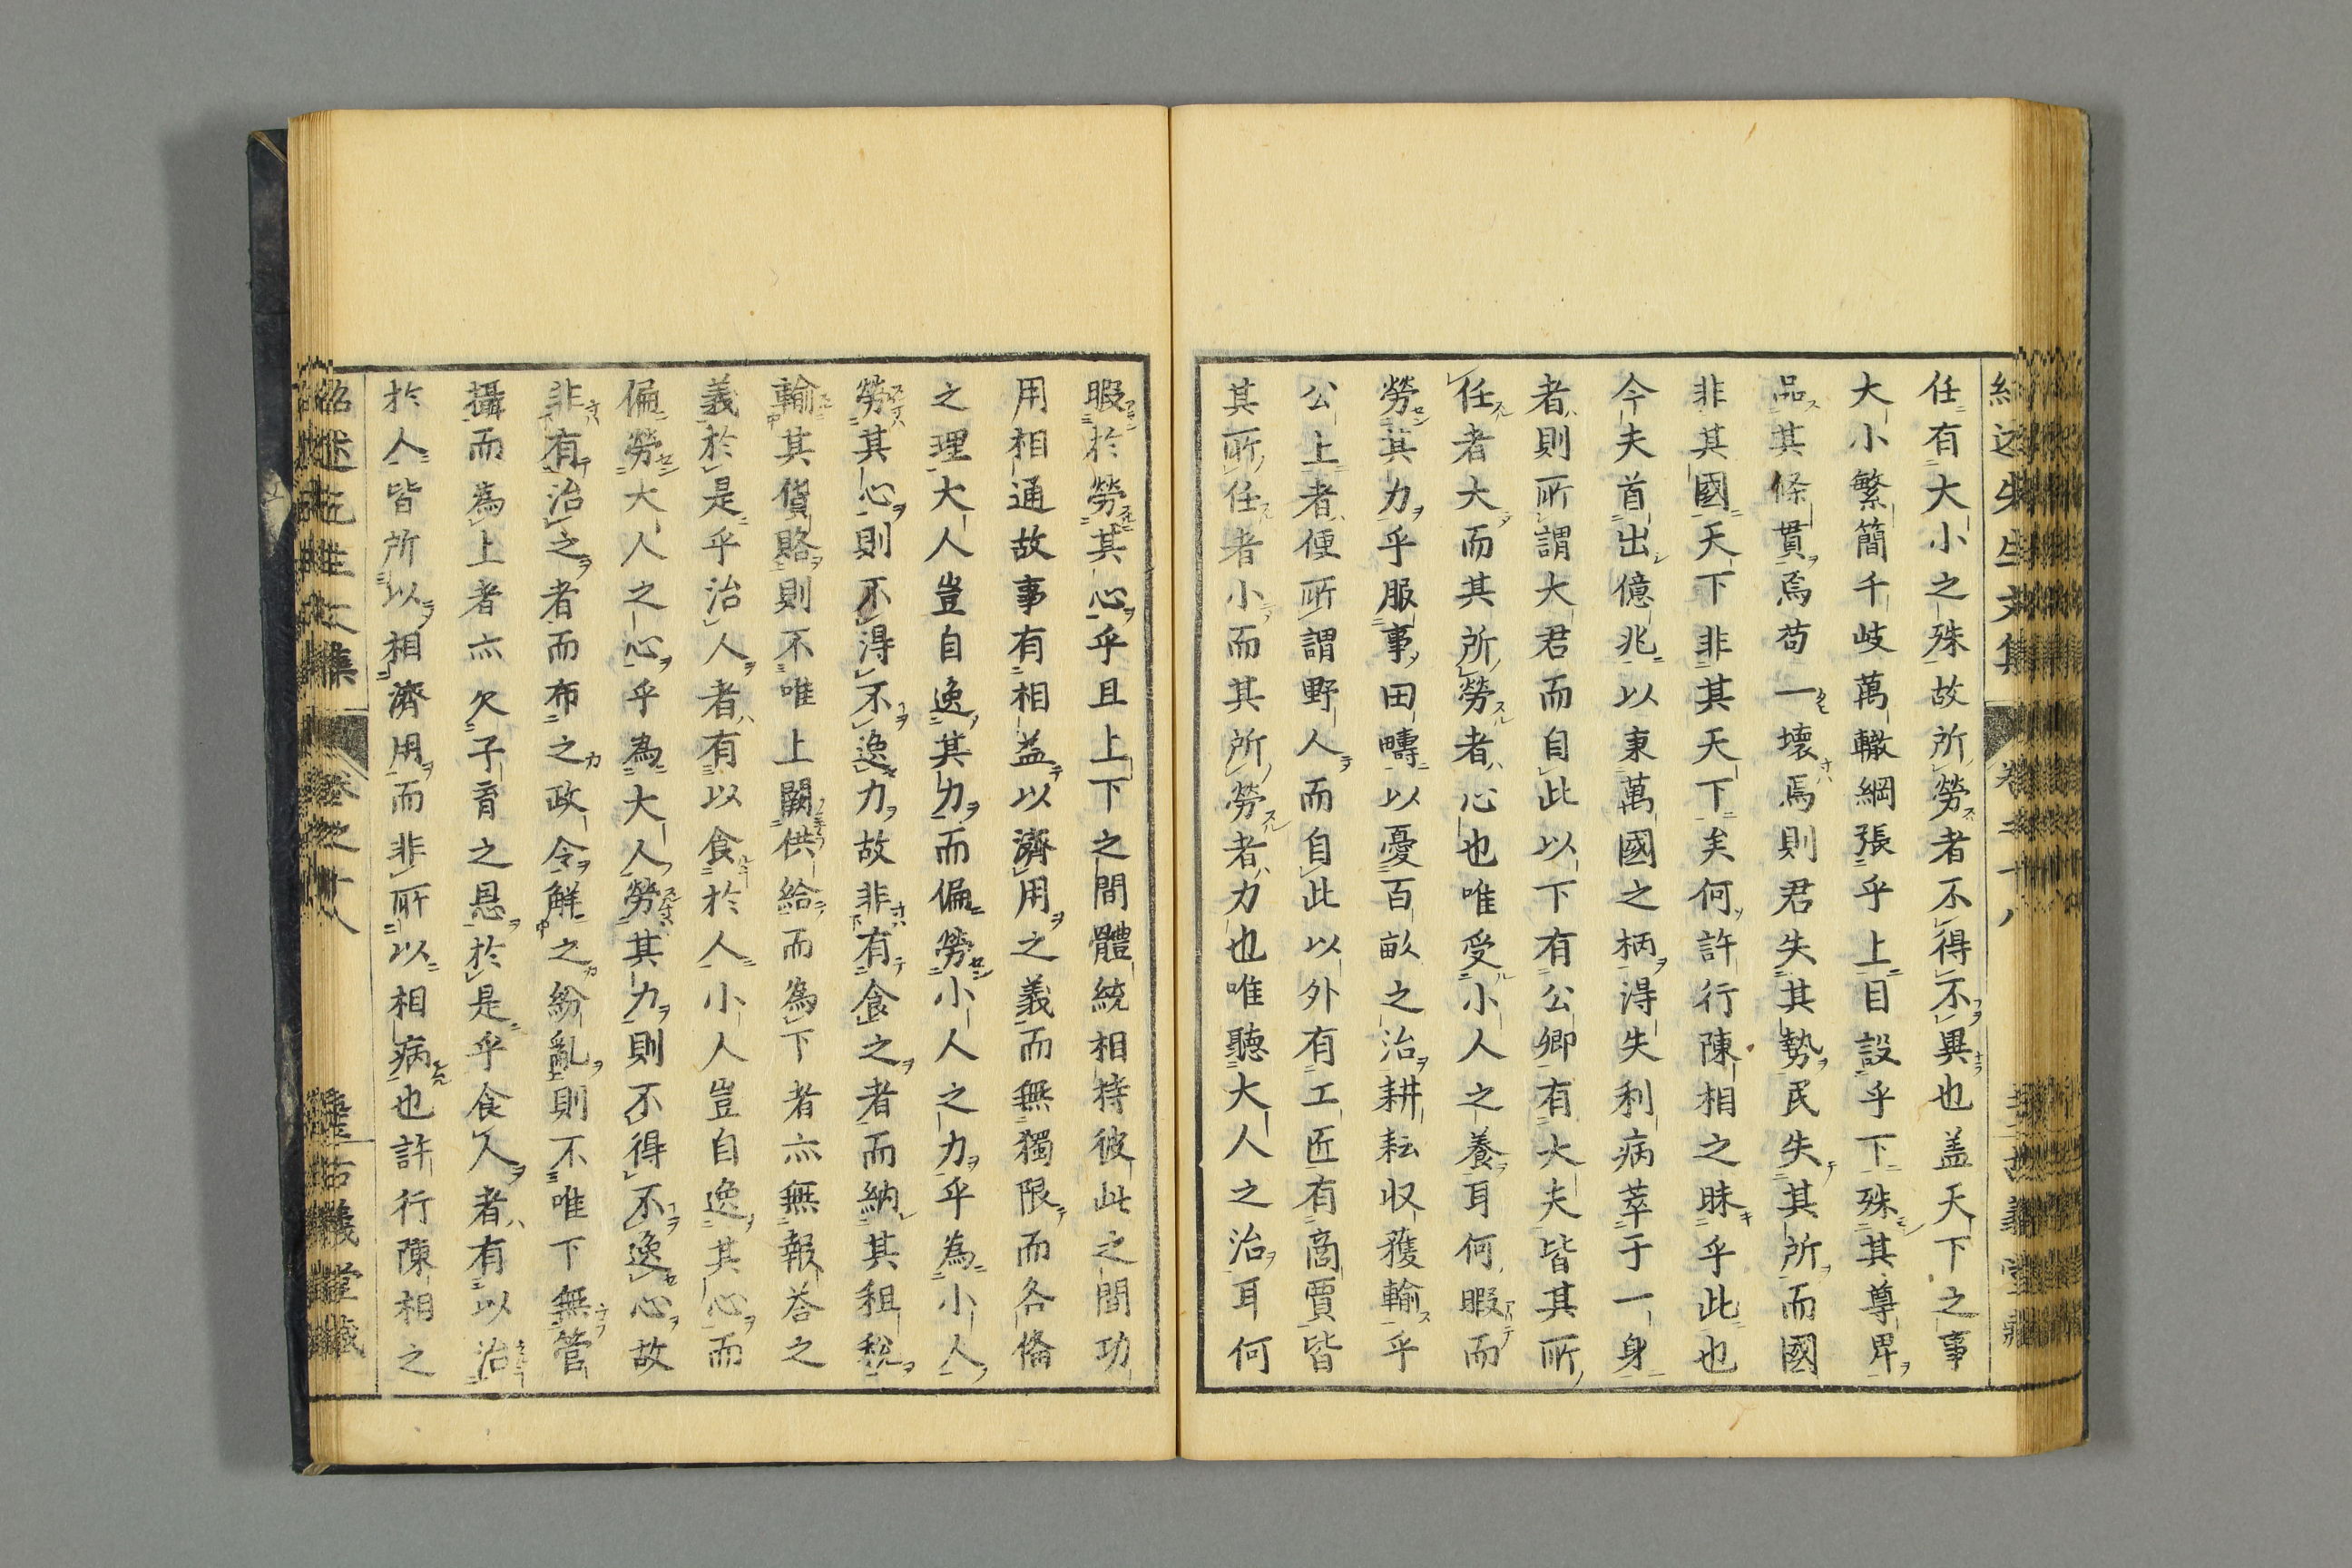 任有大小之殊故所勞者不得不異也盖天下之事
大小繁簡千岐萬轍綱張乎上目設乎下殊其尊卑
品其條貫焉苟一壞焉則君失其勢民失其所而國
非其國天下非其天下矣何許行陳相之昧乎此也
今夫首出億兆以秉萬國之柄得失利病萃于一身
者則所謂大君而自此以下有公卿有大夫皆其所
任者大而其所勞者心也唯受小人之養耳何暇而
勞其力乎服事田疇以憂百畝之治耕耘収穫輸乎
公上者便所謂野人而自此以外有工匠有商賈皆
其所任者小而其所勞者力也唯聽大人之治耳何
暇於勞其心乎且上下之間體統相持彼此之間功
用相通故事有相益以濟用之義而無獨限而各倫
之理大人豈自逸其力而偏勞小人之力乎為小人
勞其心則不得不逸力故非有食之者而納其租稅
輸其貨賂則不唯上闕供給而為下者亦無報荅之
義於是乎治人者有以食於人小人豈自逸其心而
偏勞大人之心乎為大人勞其力則不得不逸心故
非有治之者而布之政令解之紛亂則不唯下無管
攝而為上者亦欠子育之恩於是乎食人者有以治
於人皆所以相濟用而非所以相病也許行陳相之
紹述先生文集 卷之十八 古義堂藏